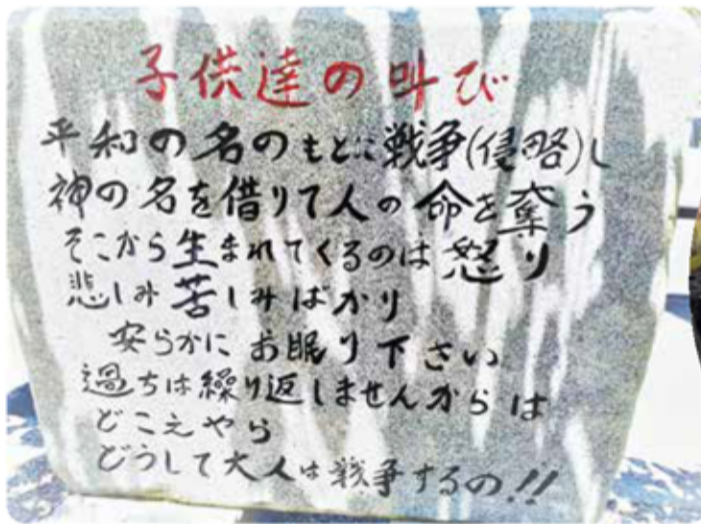 子供達の叫び
平和の名のもとに戦争(侵略)し
神の名を借りて人の命を奪う
そこから生まれてくるのは怒り
悲しみ苦しみばかり
安らかにお眠り下さい
過ちは繰り返しませんからは
どこえやら
どうして大人は戦争するの!!